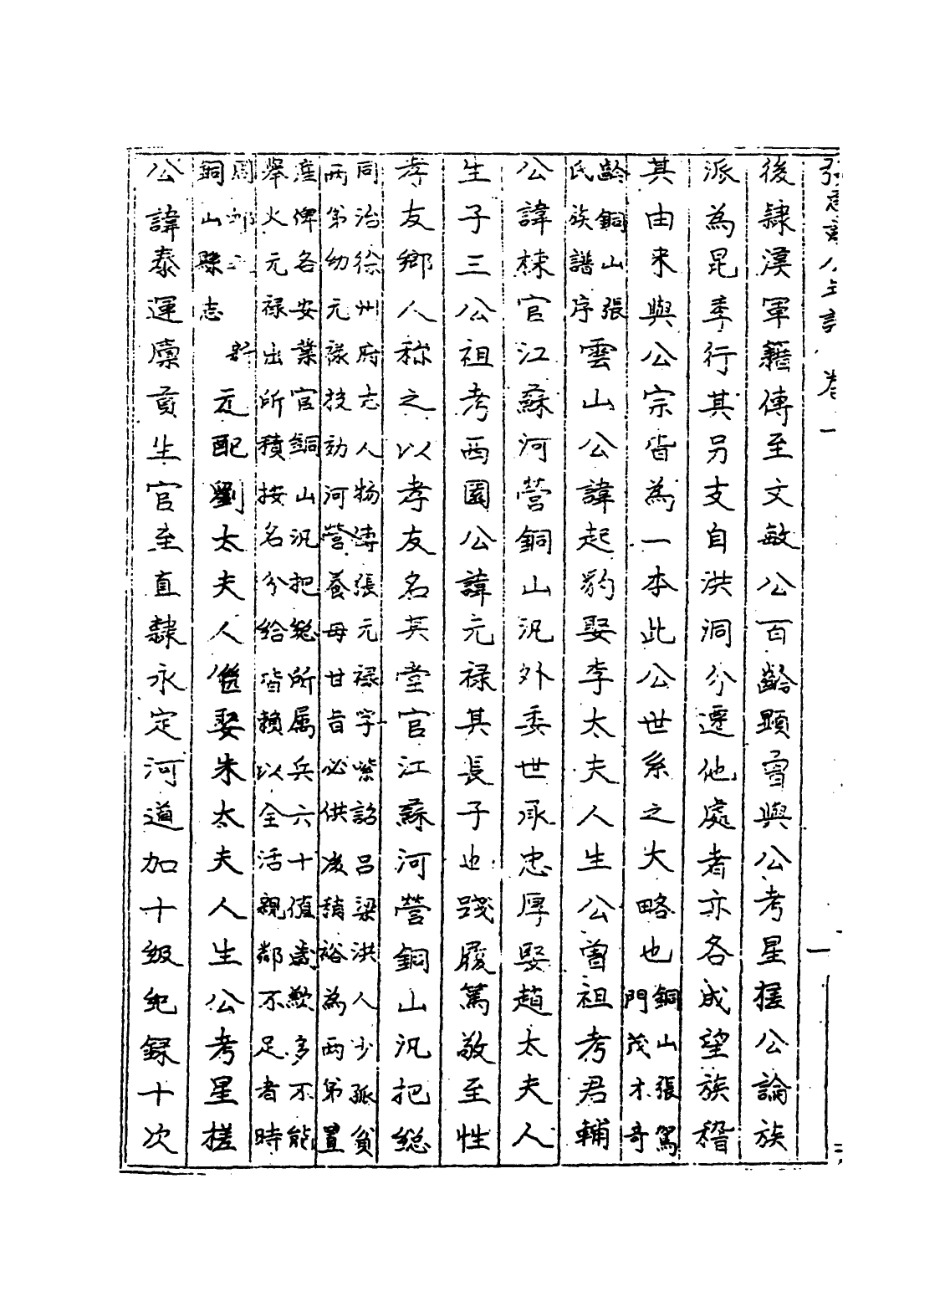 後隸漢軍籍傳至文敏公百齡顯爵與公考星槎公論族
派為昆季行其另支自洪洞分遷他處者亦各成望族稽
其由來與公宗皆為一本此公世系之大略也銅山張篤
門茂才奇
齡銅山張
氏族譜序雲山公諱起豹娶李太夫人生公曾祖考君輔
公諱棟官江蘇河營銅山汛外委世承忠厚娶趙太夫人
生子三公祖考西園公諱元祿其長子也踐履篤敬至性
孝友鄉人称之以孝友名其堂官江蘇河營銅山汛把総
同治徐州府志人物傳張元祿字紫韶呂梁洪人少孤貧
兩弟幼元祿投効河營養母甘旨必供後稍裕為兩弟置
產俾各安業官銅山汛把総所属兵六十值歲歉多不能
舉火元祿出所積按名分給皆賴以全活親鄰不足者時
周䘏之
銅山縣志元配劉太夫人繼娶朱太夫人生公考星槎
公諱泰運廩貢生官至直隸永定河道加十級紀録十次
卷一
一